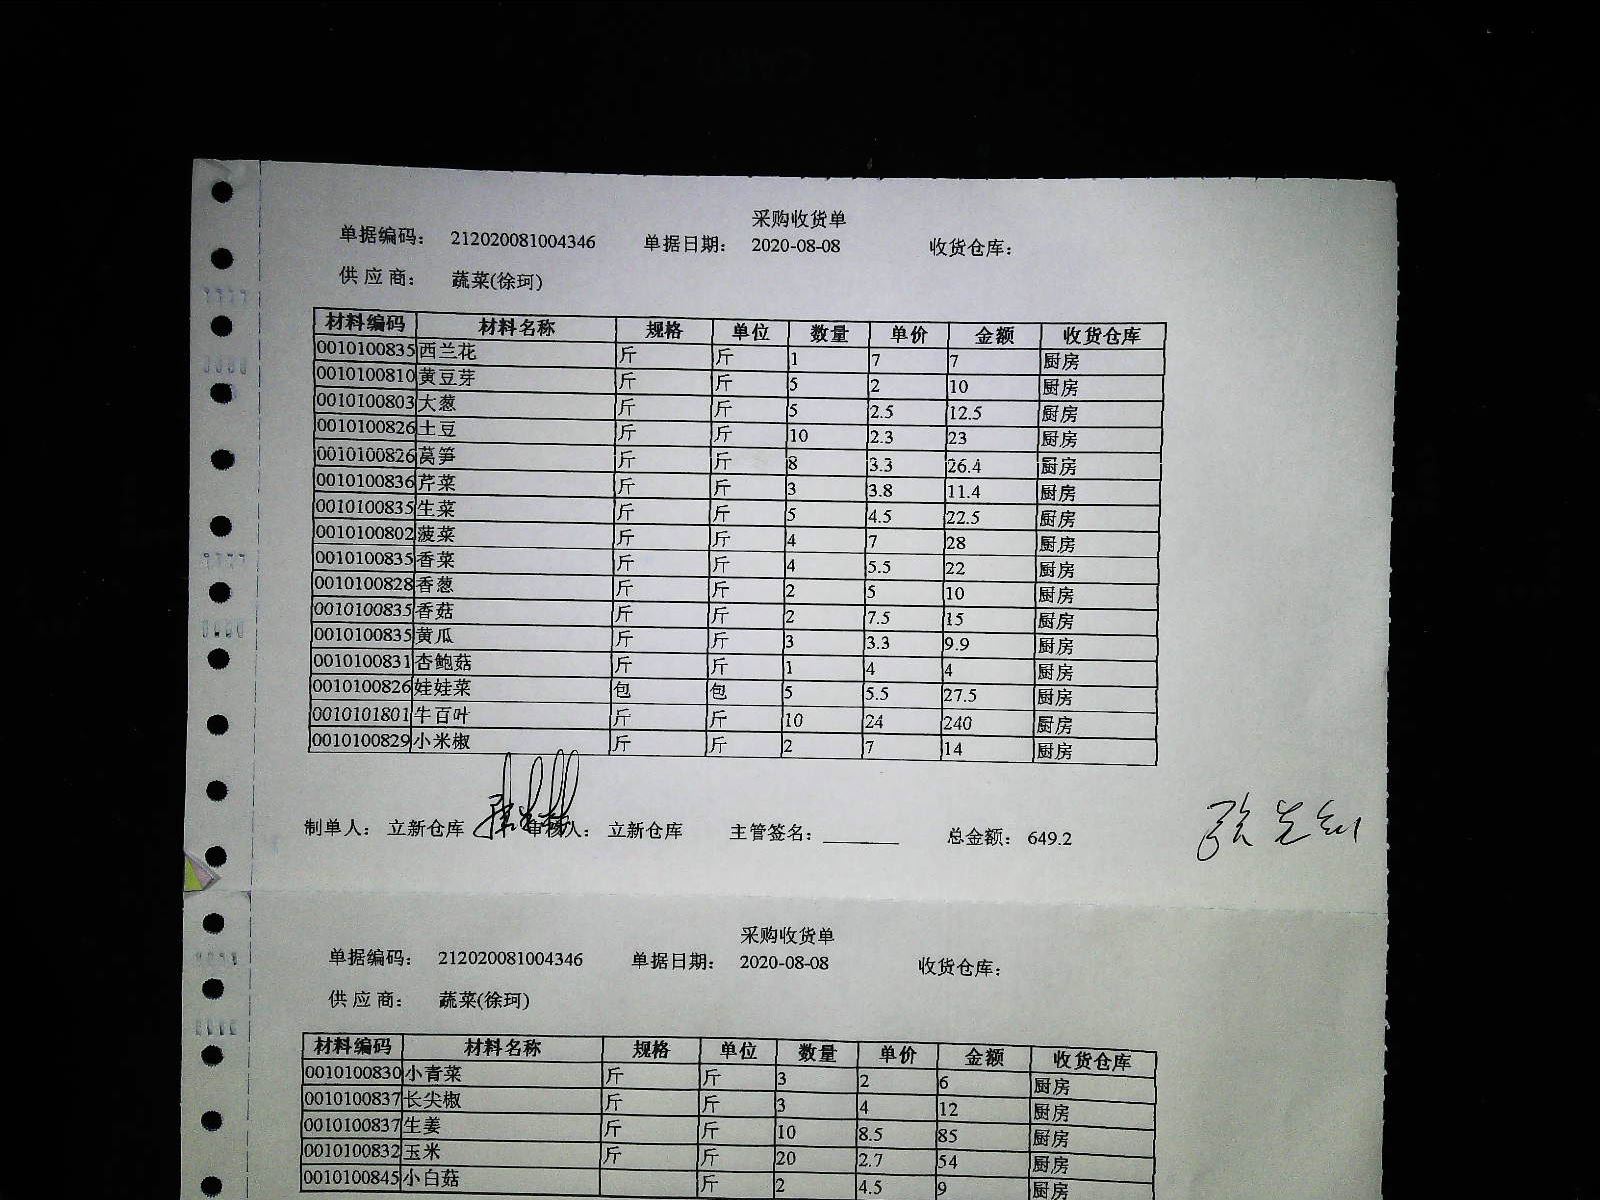 采购收货单
单据编码： 212020081004346 单据日期： 2020-08-08 收货仓库：
供 应 商： 蔬菜(徐珂)
材料编码 材料名称 规格 单位 数量 单价 金额 收货仓库
0010100835 西兰花 斤 斤 1 7 7 厨房
0010100810 黄豆芽 斤 斤 5 2 10 厨房
0010100803 大葱 斤 斤 5 2.5 12.5 厨房
0010100826 土豆 斤 斤 10 2.3 23 厨房
0010100826 莴笋 斤 斤 8 3.3 26.4 厨房
0010100836 芹菜 斤 斤 3 3.8 11.4 厨房
0010100835 生菜 斤 斤 5 4.5 22.5 厨房
0010100802 菠菜 斤 斤 4 7 28 厨房
0010100835 香菜 斤 斤 4 5.5 22 厨房
0010100828 香葱 斤 斤 2 5 10 厨房
0010100835 香菇 斤 斤 2 7.5 15 厨房
0010100835 黄瓜 斤 斤 3 3.3 9.9 厨房
0010100831 杏鲍菇 斤 斤 1 4 4 厨房
0010100826 娃娃菜 包 包 5 5.5 27.5 厨房
0010101801 牛百叶 斤 斤 10 24 240 厨房
0010100829 小米椒 斤 斤 2 7 14 厨房
制单人： 立新仓库 审核人： 立新仓库 主管签名： 总金额： 649.2
采购收货单
单据编码： 212020081004346 单据日期： 2020-08-08 收货仓库：
供 应 商： 蔬菜(徐珂)
材料编码 材料名称 规格 单位 数量 单价 金额 收货仓库
0010100830 小青菜 斤 斤 3 2 6 厨房
0010100837 长尖椒 斤 斤 3 4 12 厨房
0010100837 生姜 斤 斤 10 8.5 85 厨房
0010100832 玉米 斤 斤 20 2.7 54 厨房
0010100845 小白菇 斤 2 4.5 9 厨房